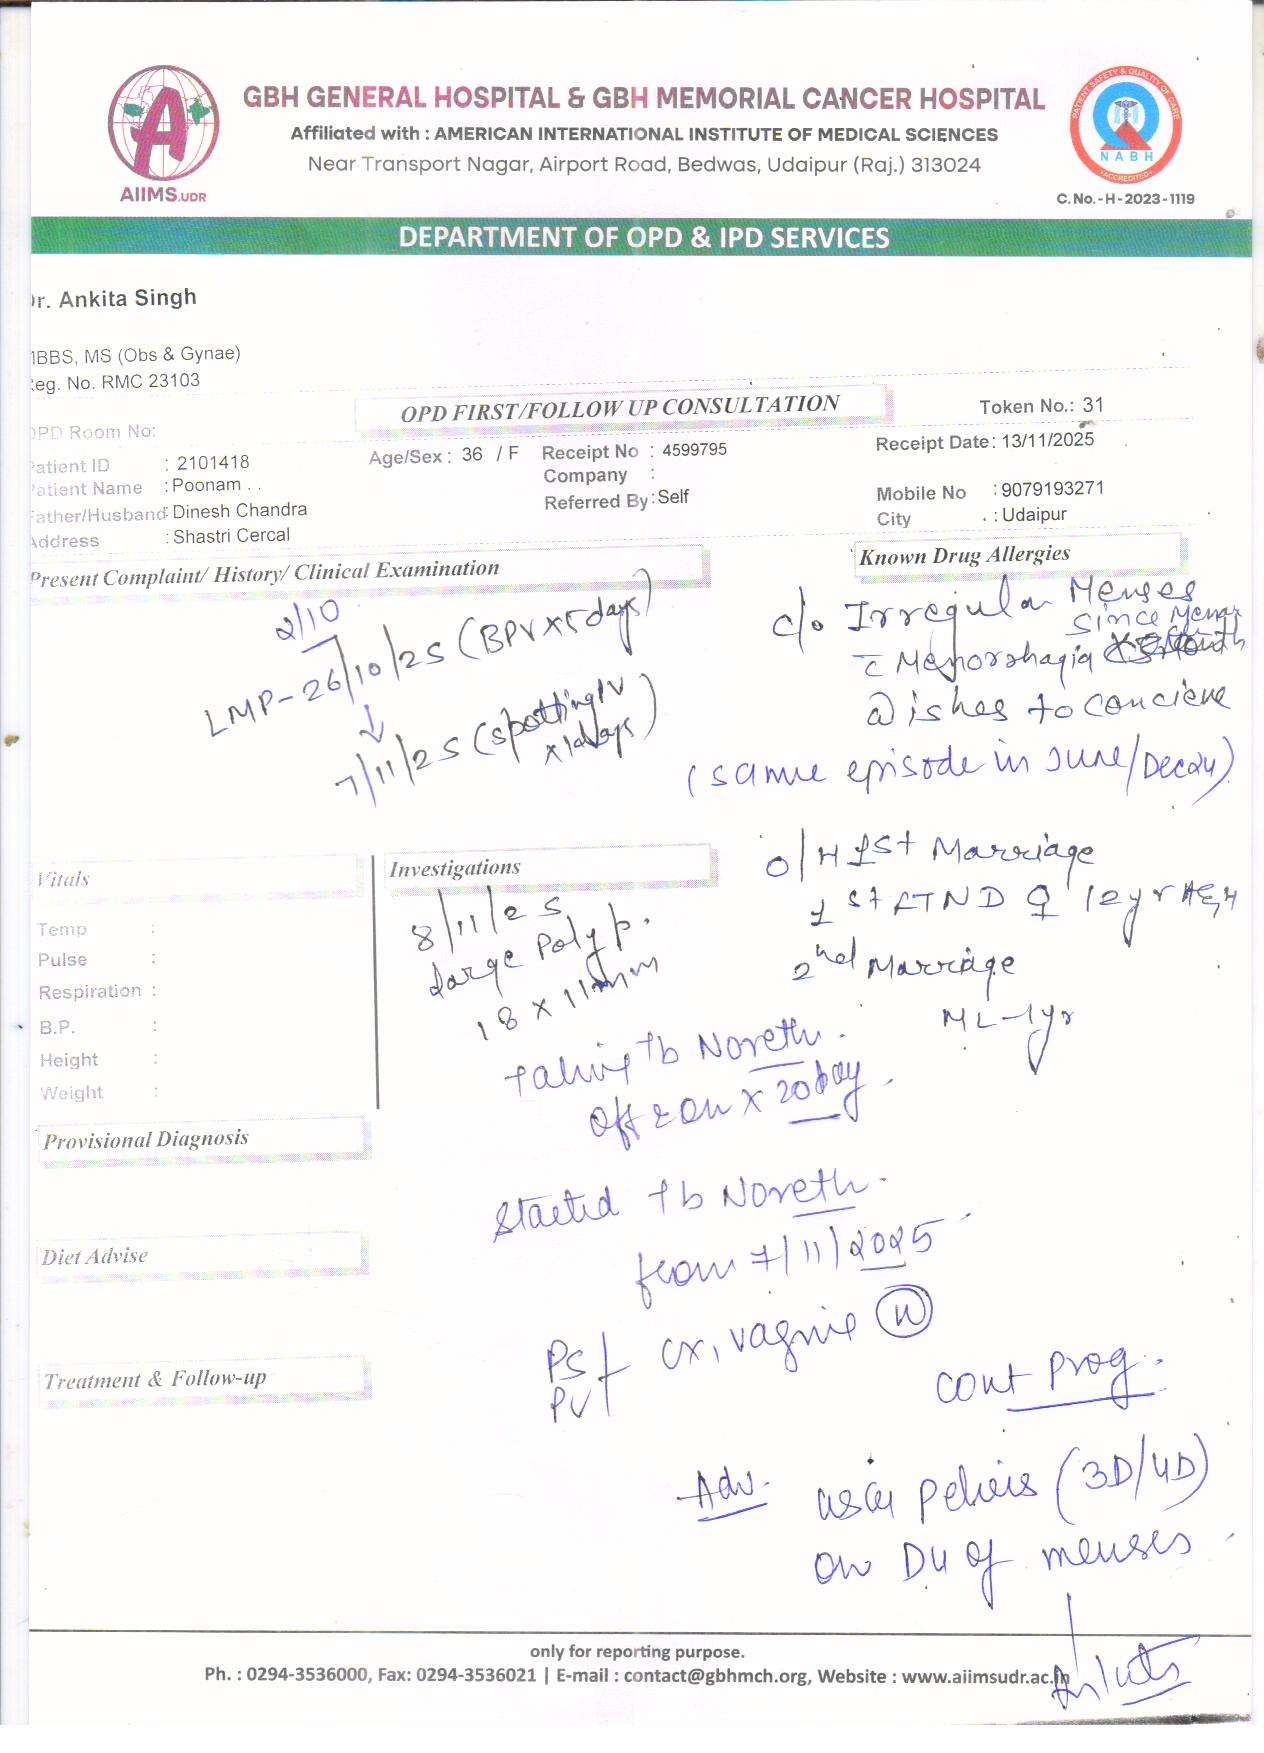 AIIMS.UDR
GBH GENERAL HOSPITAL & GBH MEMORIAL CANCER HOSPITAL
Affiliated with : AMERICAN INTERNATIONAL INSTITUTE OF MEDICAL SCIENCES
Near Transport Nagar, Airport Road, Bedwas, Udaipur (Raj.) 313024
PATIENT SAFETY & QUALITY OF CARE
NABH
ACCREDITED
C. No. - H - 2023 - 1119
DEPARTMENT OF OPD & IPD SERVICES
Dr. Ankita Singh
MBBS, MS (Obs & Gynae)
Reg. No. RMC 23103
OPD FIRST/FOLLOW UP CONSULTATION
Token No.: 31
OPD Room No:
Patient ID : 2101418
Age/Sex : 36 / F
Receipt No : 4599795
Receipt Date: 13/11/2025
Patient Name : Poonam . .
Company :
Father/Husband: Dinesh Chandra
Referred By : Self
Mobile No : 9079193271
Address : Shastri Cercal
City : Udaipur
Present Complaint/ History/ Clinical Examination
Known Drug Allergies
2/10
LMP - 26/10/25 (BPV x 5 days)
↓
7/11/25 (spotting IV
days)
c/o Irregular Menses
since
c Menorrhagia
wishes to concieve
(same episode in June/Dec24)
O/H 1st Marriage
1st FTND ♀ 12yr A&H
2nd Marriage
ML - 1yr
Vitals
Temp :
Pulse :
Respiration :
B.P. :
Height :
Weight :
Investigations
8/11/25
Large Polyp.
18 x 11mm
taking tb Noreth.
off & on x 20 day.
Provisional Diagnosis
Started tb Noreth.
from 7/11/2025
Diet Advise
PS
PV
cx, vagina N
Treatment & Follow-up
cont Prog.
Adv. USG pelvis (3D/4D)
on D4 of menses.
Ankita
only for reporting purpose.
Ph. : 0294-3536000, Fax: 0294-3536021 | E-mail : contact@gbhmch.org, Website : www.aiimsudr.ac.in